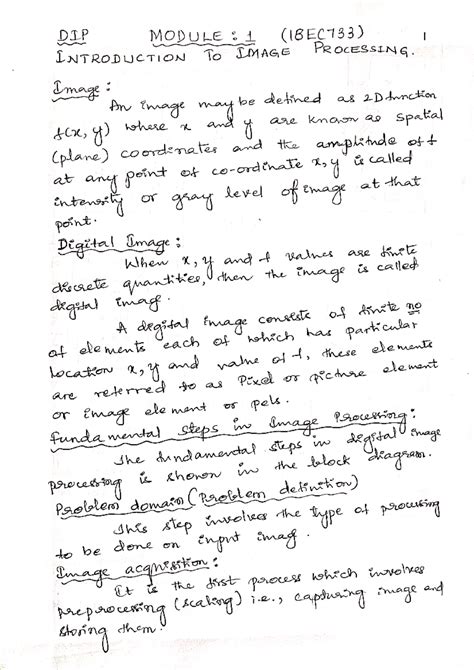 DIP MODULE : 1 (18EC733) 1
INTRODUCTION TO IMAGE PROCESSING.
Image :
An image may be defined as 2D function
f(x, y) where x and y are known as spatial
(plane) coordinates and the amplitude of f
at any point of co-ordinate x, y is called
intensity or gray level of image at that
point.
Digital Image :
When x, y and f values are finite
discrete quantities, then the image is called
digital imag.
A digital image consists of finite no
of elements each of which has particular
location x, y and value of f, these elements
are referred to as Pixel or picture element
or image element or pels.
fundamental steps in Image Processing :
The fundamental steps in digital image
processing is shown in the block diagram.
Problem domain (Problem definition)
This step involves the type of processing
to be done on input imag.
Image acquisition :
It is the first process which involves
preprocessing (scaling) i.e., capturing image and
storing them.